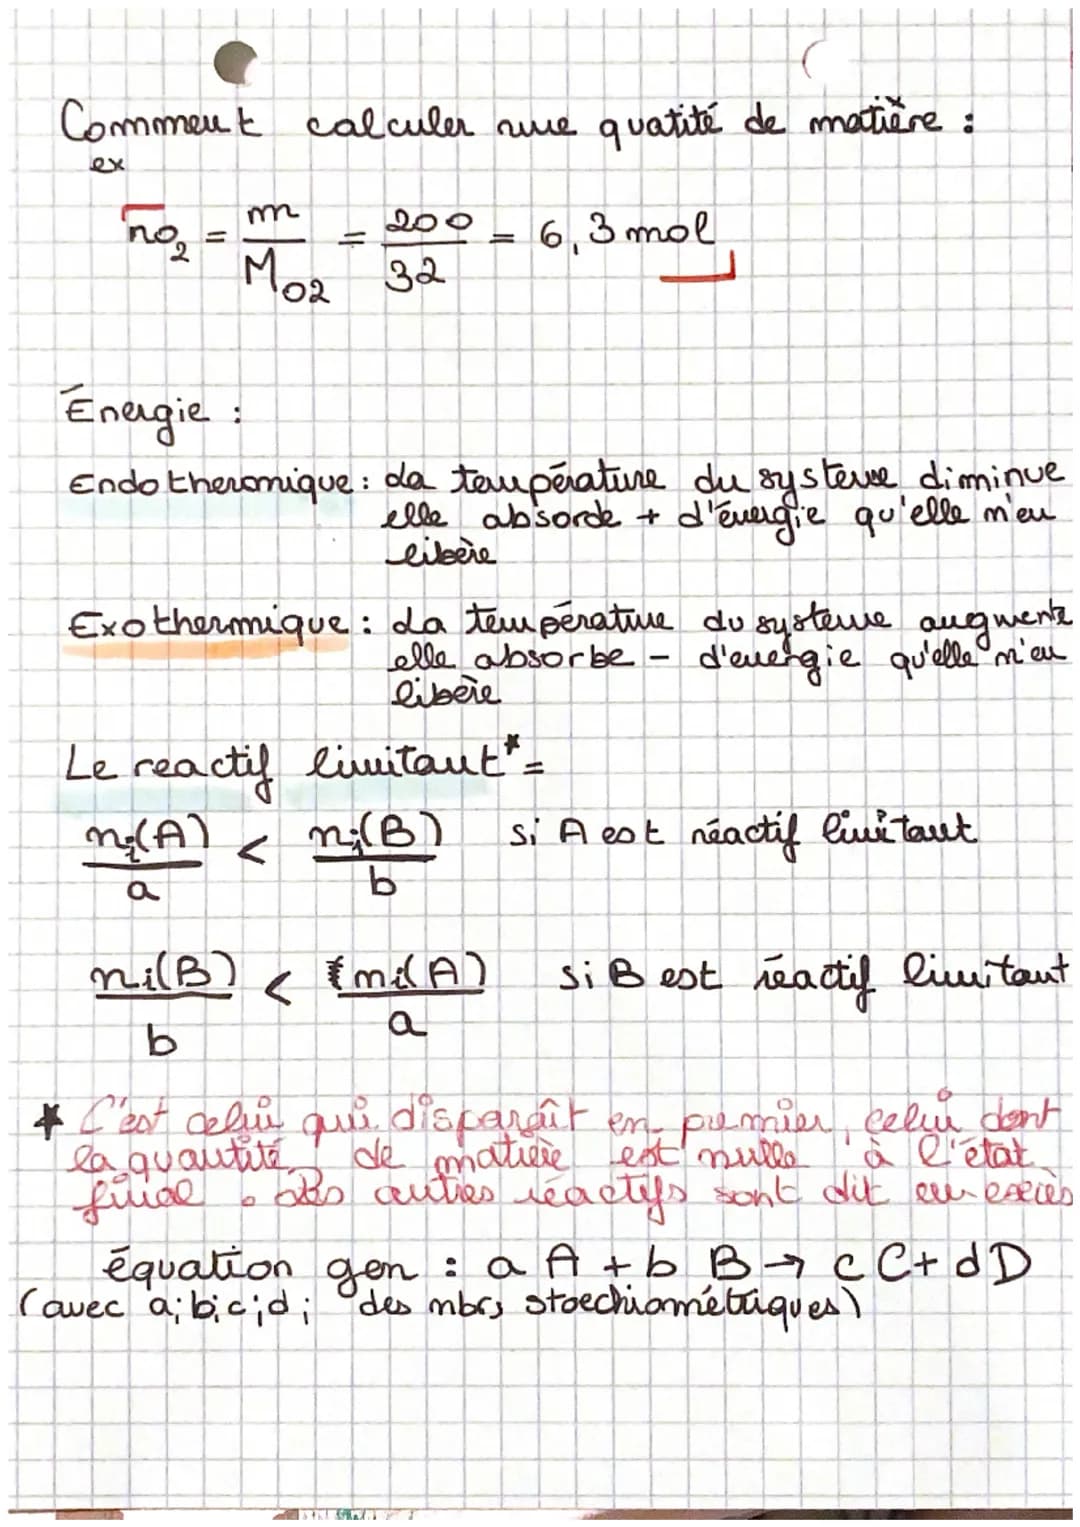 Comment calculer une quatité de matière :
ex
nO₂ = m / M_O2 = 200 / 32 = 6,3 mol
Énergie :
Endothermique : La température du systeme diminue
elle absorde + d'énergie qu'elle n'en
libère
Exothermique : La température du systeme augmente
elle absorbe - d'énergie qu'elle n'en
libère
Le reactif limitant* =
ni(A) / a < ni(B) / b si A est réactif limitant
ni(B) / b < ni(A) / a si B est réactif limitant
* C'est celui qui disparaît en premier, celui dont
la quantité de matière est nulle à l'état
final. Les autres réactifs sont dit en excès
équation gen : a A + b B → c C + d D
(avec a;b;c;d; des nbrs stoechiométriques)